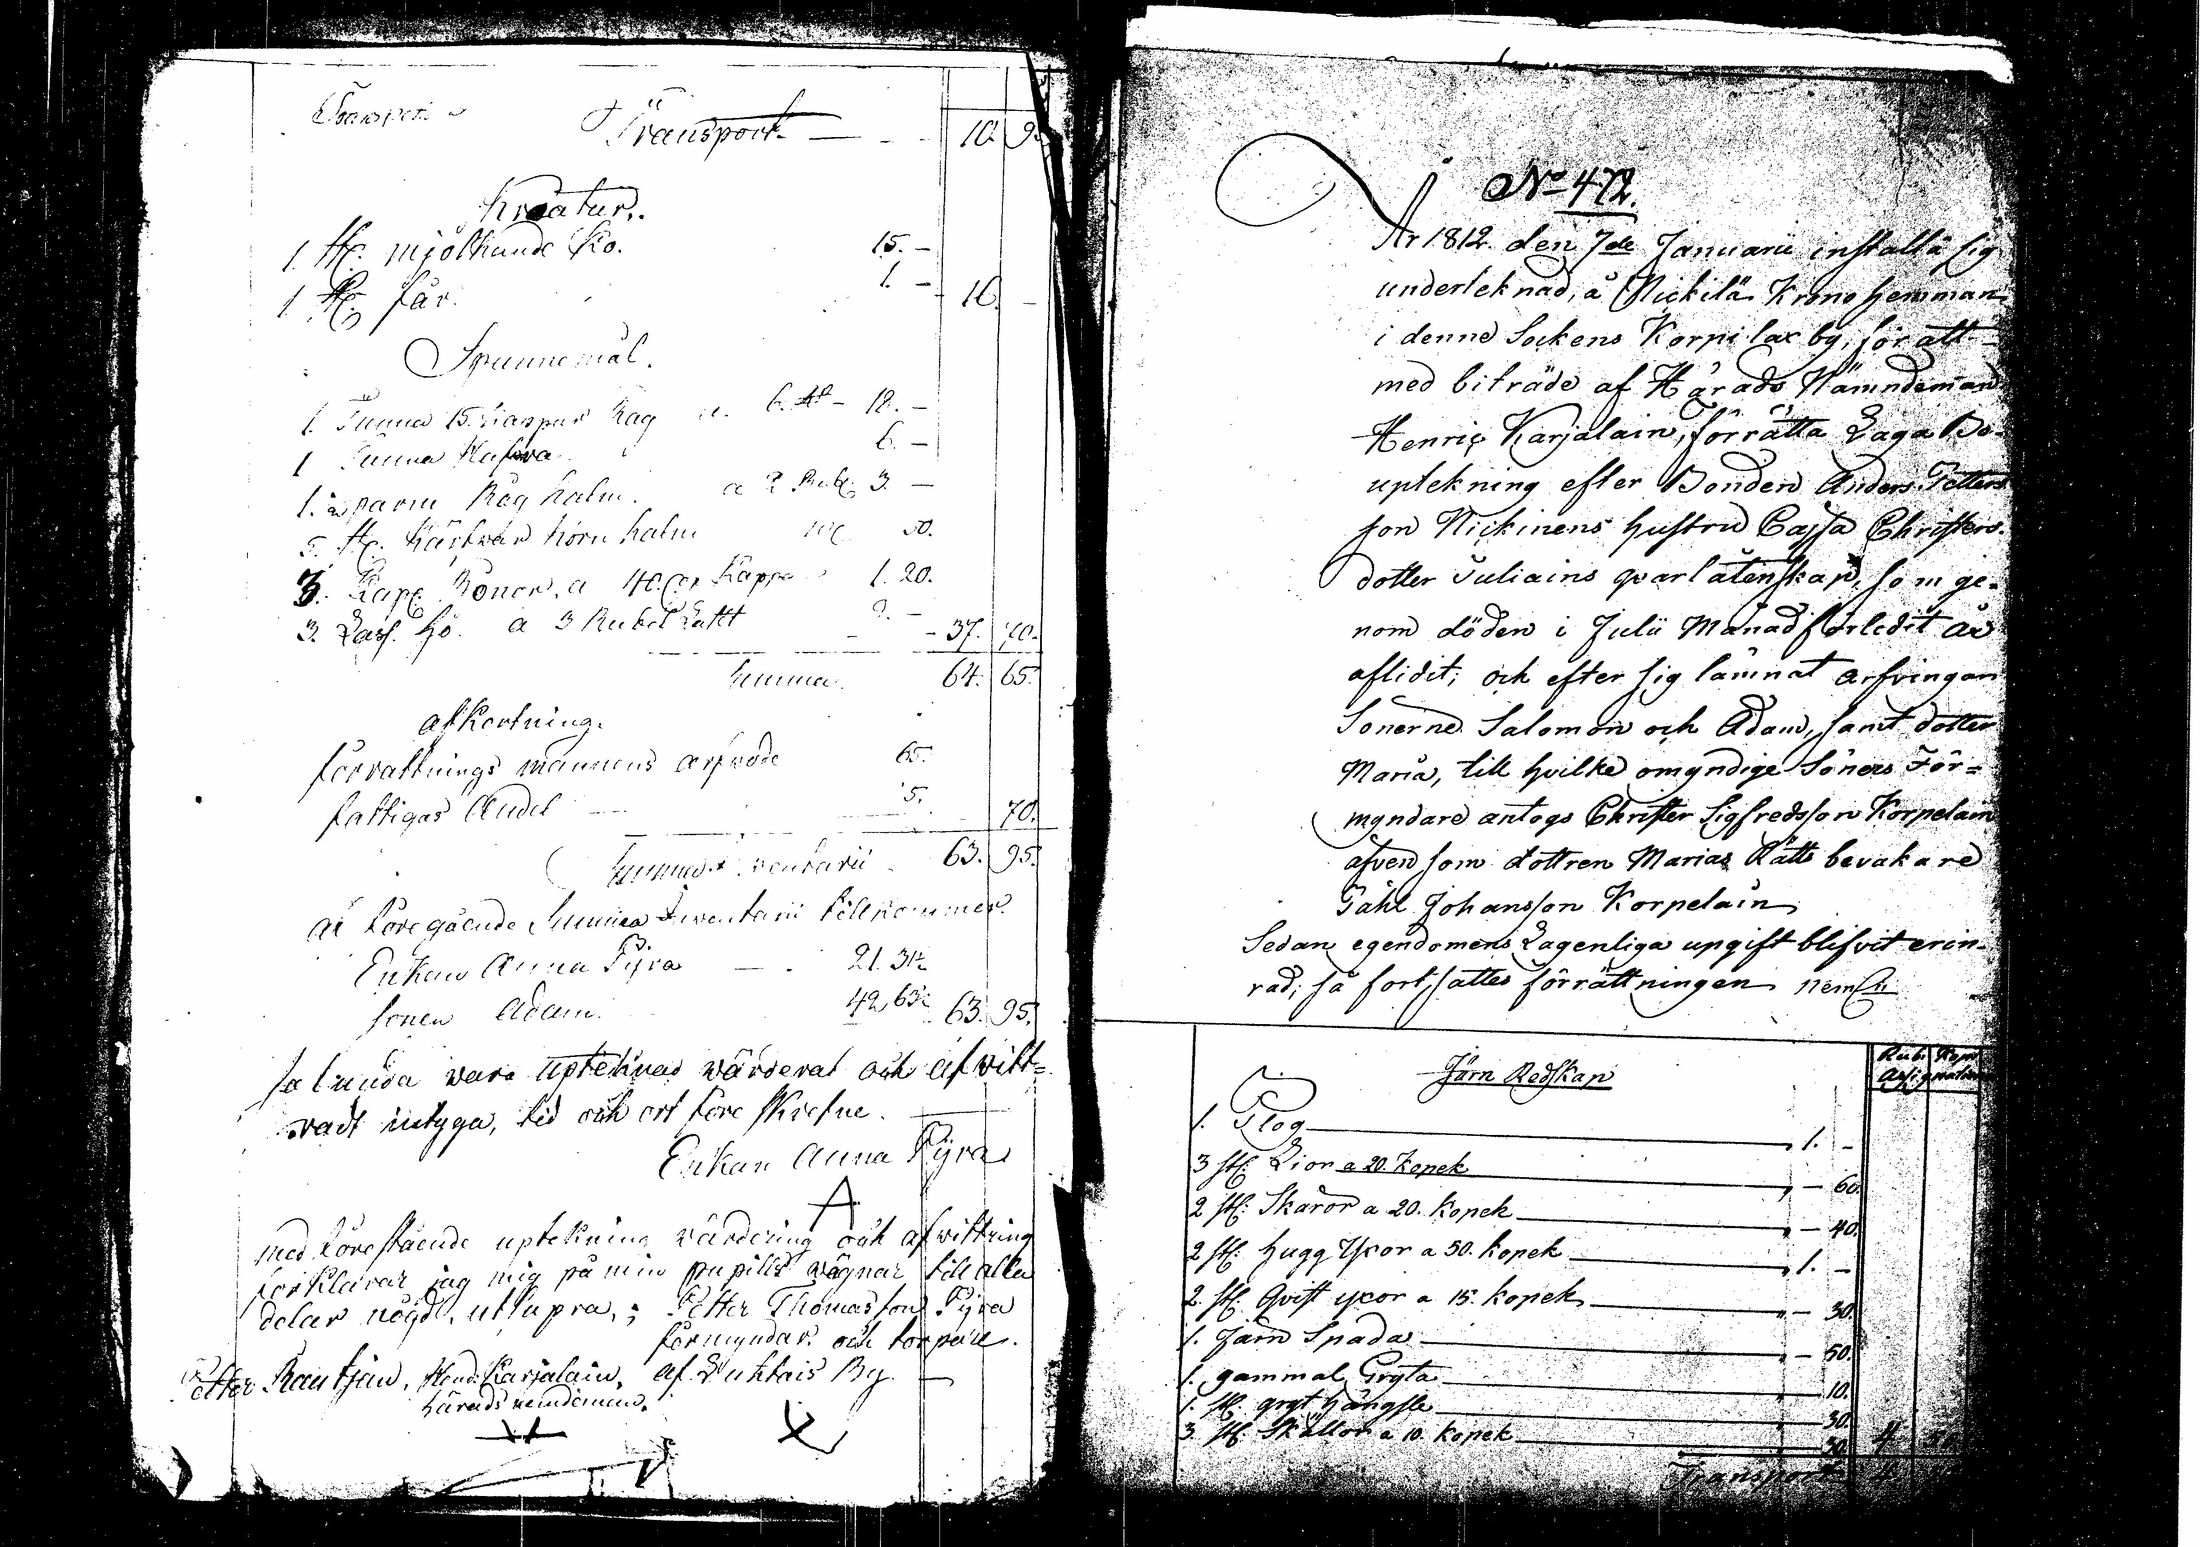 Transport
Transport — 10. 9
Kreatur.
1. st. mjölkande Ko. 15. —
1 st. får. 1. — 16. —
Spannemål.
1. Tunna 15. kappar Råg a. 6. 18. —
1 Tunna Hafra 6. —
1. parm Råg halm. a 2 Rub. 3. —
5. st. Kärfvar korn halm 50.
3. Kap. Bönor, a 40. Cop Kappa 1. 20.
3. Lass. hö. a 3 Rubel Lasst 9. — 37. 70.
Summa 64. 65.
afkortning.
förrattnings mannens arfvode 65.
fattigas Andel — 5. 70.
Summa Inventarii 63. 95.
af föregående Summa Inventarii tillkommer.
Enkan Anna Pÿra — 21. 31 2/3
sonen Adam. 42 63 1/3 63. 95.
sålunda vara upteknad värderat och afvitt=
radt intyga, tid och ort före skrefne.
Enkan Anna Pÿra
med förestående uptekning värdering och afwittring
förklarar jag mig på min pupills vägnar till alla
delar nögd, ut supra,; Petter Thomasson Pÿra
förmyndar. och torpare.
Petter Rautjain, Hend. Karjalain, af By —
härads nemdeman.
No 472.
År 1812. den 7de Januarii instalta sig
underteknad, å Nickilä Krono hemman
i denne Sockens Korpilax by, för att
med biträde af Härads Nämndeman
Henric Karjalain, förrätta Laga Bo-
uptekning efter Bonden Anders Petters
son Nickinens hustru Cajsa Christers-
dotter Juliains qvarlåtenskap, som ge-
nom döden i Julii Månad förledit år
aflidit; och efter sig lämnat arfvingar
Sönerne Salomon och Adam, samt dotter
Maria, till hvilke omyndige Söners För=
myndare antogs Christer Sigfredsson Korpelain
äfven som dottren Marias Rätts bevakare
Påhl Johansson Korpelain
Sedan egendomens Lagenliga upgift blifvit erin-
rad; så fort sattes förrättningen neml:n
Rub: Kope
Assignation
Järn Redskap
1. Plog — 1. —
3 st: Lior a 20. Kopek — 60.
2 st: Skäror a 20. Kopek — 40.
2 st: hugg Yxor a 50. kopek — 1. —
2. st: Qvist yxor a 15. kopek — 30.
1. Järn Spada — 50.
1. gammal Gryta — 10.
1. st. gryt hängsle — 30.
3 st. Skällor a 10. Kopek — 30. 4 50
Transport 4